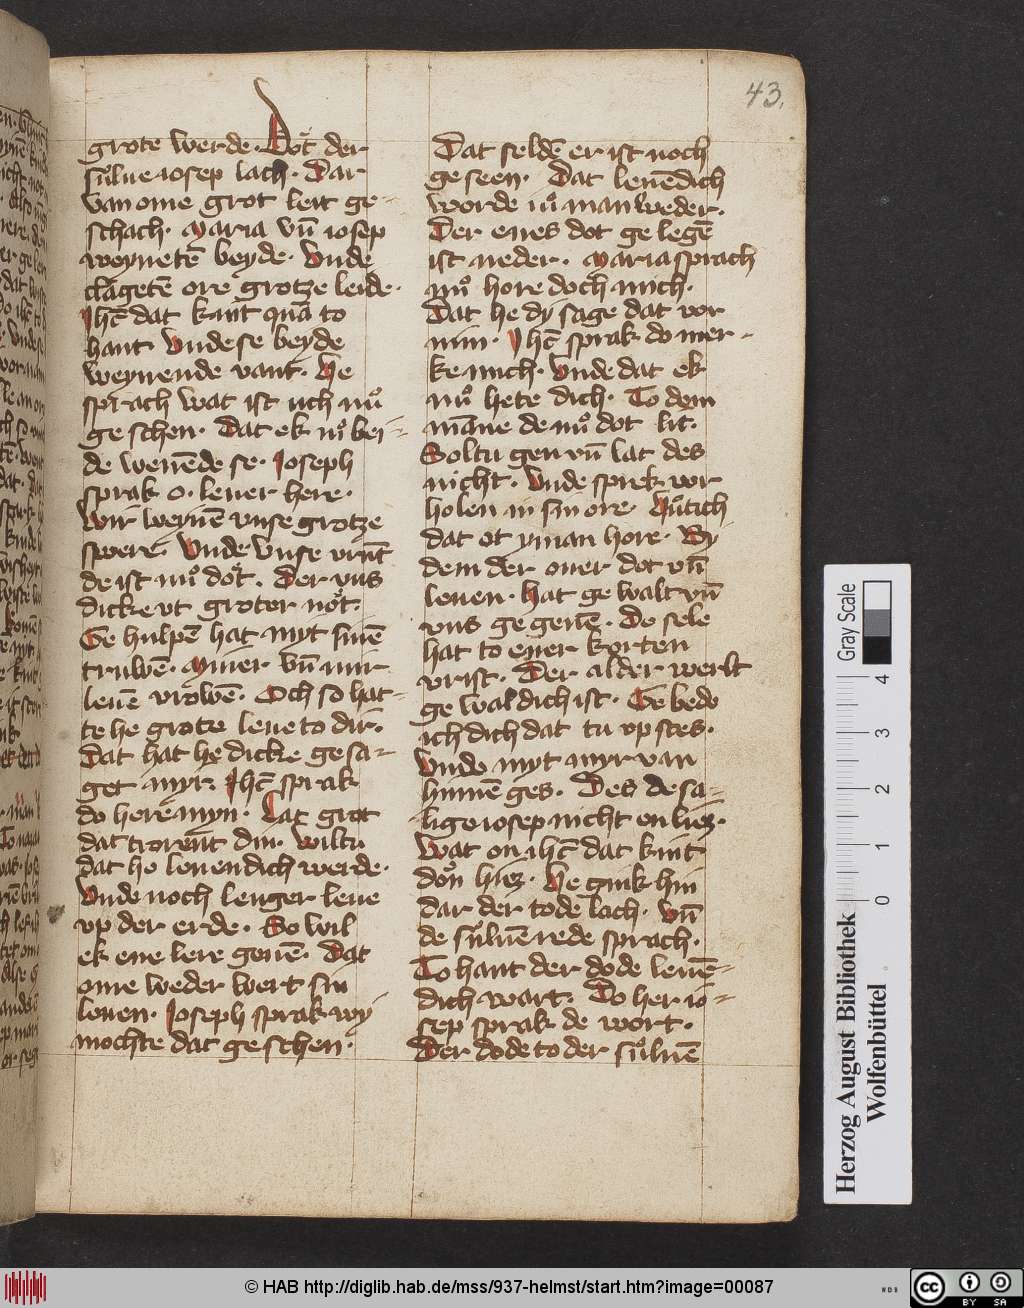 43.
grote werde. Dot der
sulue iosep lach. Dar
van ome grot leit ge-
schach. Maria vn̄ iosep
weynetē beyde. Vnde
clagetē ore grotze leide.
Ihc̄ dat kint quā to
hant Vnde se beyde
weynende vant. He
sprach wat ist uch nů
ge schen. Dat ek nů bei-
de wenēde se. Ioseph
sprak o. leuer here.
Wir weynē vnse grotze
swere. Vnde Vnse vrūt
de ist nů dot. Der vns
dicke vt groter not.
Ge hulpē hat myt sinē
truwē. Myner vn̄ mir
leuē vrowē. Och so hat-
te he grote leue to dir.
Dat hat he dicke ge sa-
get myr. Ihc̄ sprak
do here myn. Lat grot
dat trorent din. Wiltu
dat he leuendich werde.
Vnde noch lenger leue
vp der erde. So wil
ek ene lere geuē. Dat
ome weder wert sin
leuen. Ioseph sprak wy
mochte dat geschen.
Dat seldē er ist noch
ge seen. Dat leuēdich
worde iů man weder.
Der enes dot ge legē
ist neder. Maria sprach
nů hore doch mich.
Dat he dy sage dat vor
nim. Ihc̄ sprak do mer-
ke mich. Vnde dat ek
nů hete dich. To dem
māne de nů dot lit.
Soltu gen vn̄ lat des
nicht. Vnde sprek vor
holen in sin ore.
dat ot yman hore. By
dem der ouer dot vn̄
leuen. Hat ge walt vn̄
vns ge geuē. De sele
hat to ener korten
vrist. Der alder werlt
ge waldich ist. Ge bede
ich dich dat tu vp stes.
Vnde myt myr van
hinnē ges. Des de sa-
lige iosep nicht en liez.
Wat on ihc̄ dat kint
don hiez. He gink hin
dar der tode lach. Vn̄
de suluē rede sprach.
To hant der dode leuē-
dich wart. Do her io-
sep sprak de wort.
Der dode to der suluē
Gray Scale
4
3
2
1
0
Herzog August Bibliothek
Wolfenbüttel
© HAB http://diglib.hab.de/mss/937-helmst/start.htm?image=00087
WDB
cc
BY SA